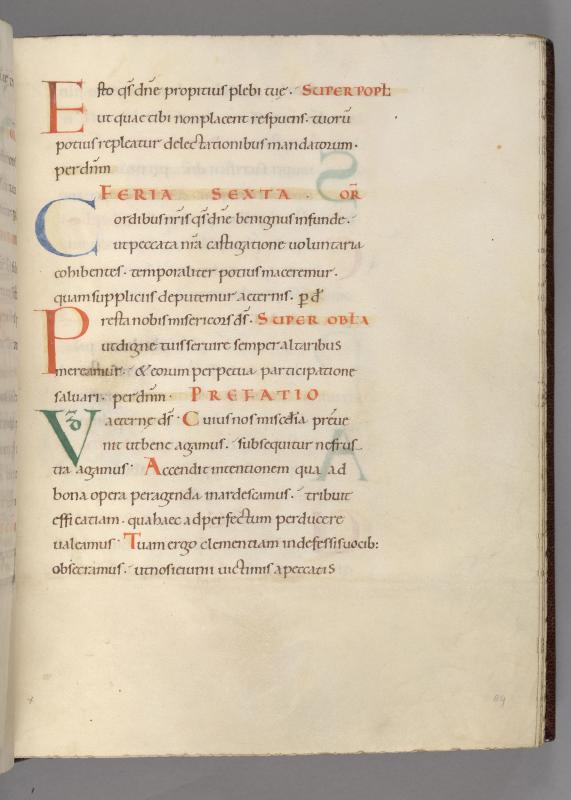 Esto qs dne propitius plebi tuę. SUPER POPL
ut quae tibi non placent respuens. tuorū
potius repleatur delectationibus mandatorum.
per dnm
FERIA SEXTA. OR
Cordibus nris qs dne benignus infunde.
ut peccata nra castigatione uoluntaria
cohibentes. temporaliter potius maceremur.
quam suppliciis deputemur aeternis. p d
Presta nobis misericors ds. SUPER OBLA
ut digne tuis seruire semper altaribus
mereamur. & eorum perpetua participatione
saluari. per dnm. PREFATIO
VD aeterne ds. Cuius nos misćdia preue
nit ut bene agamus. subsequitur ne frus
tra agamus. Accendit intentionem qua ad
bona opera peragenda inardescamus. tribuit
efficatiam. qua haec ad perfectum perducere
ualeamus. Tuam ergo clementiam indefessis uocib:
obsecramus. ut nos ieiunii uictimis a peccatis